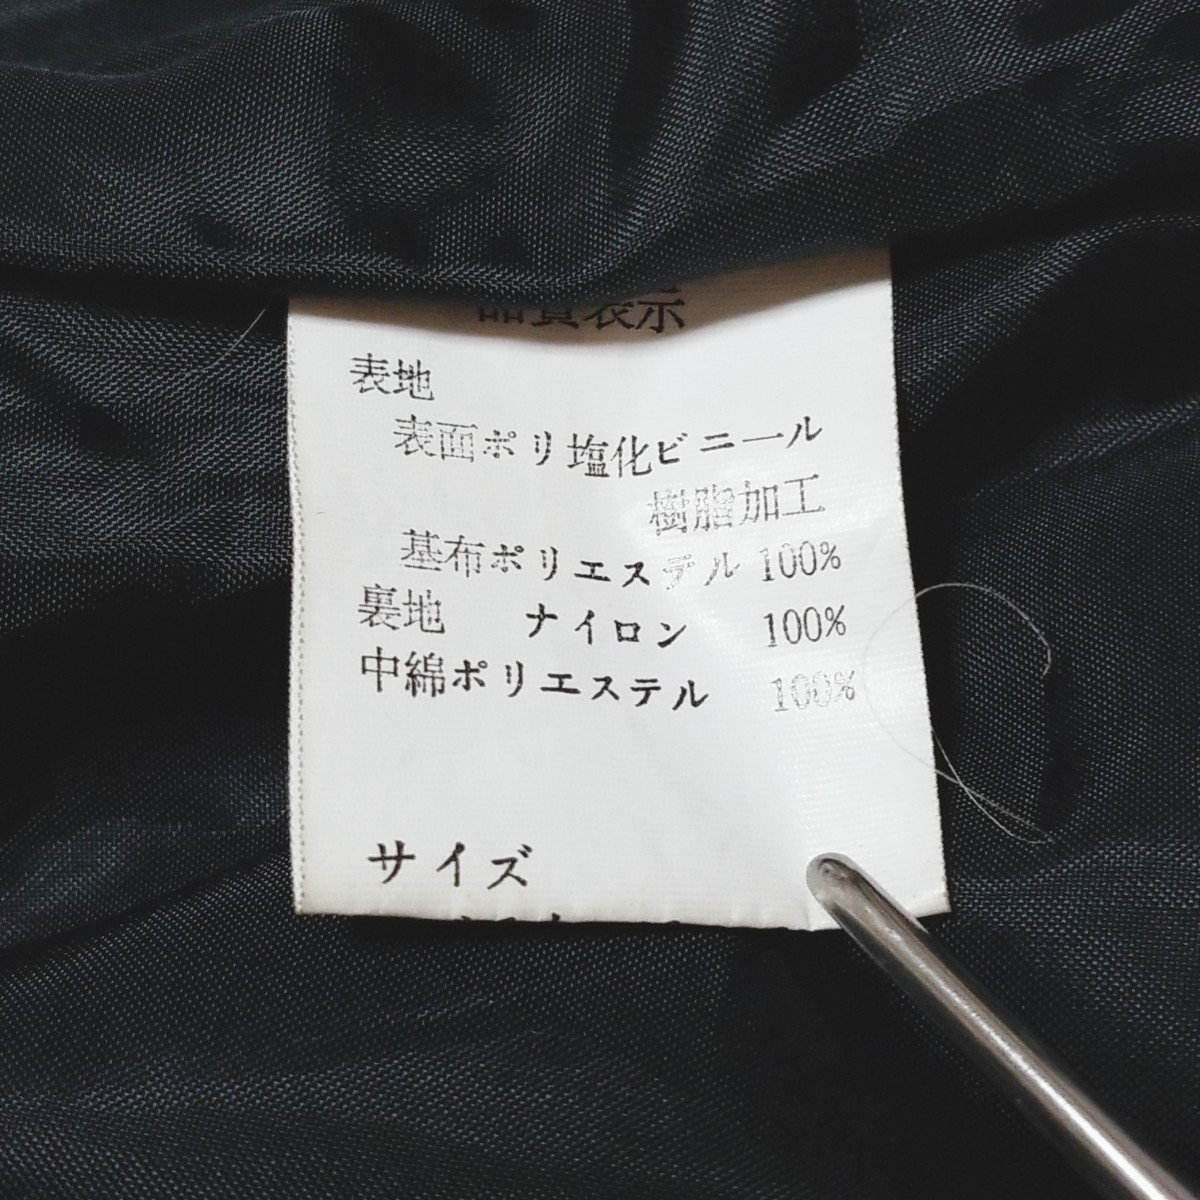 品質表示
表地
表面ポリ塩化ビニール
樹脂加工
基布ポリエステル 100%
裏地 ナイロン 100%
中綿ポリエステル 100%
サイズ